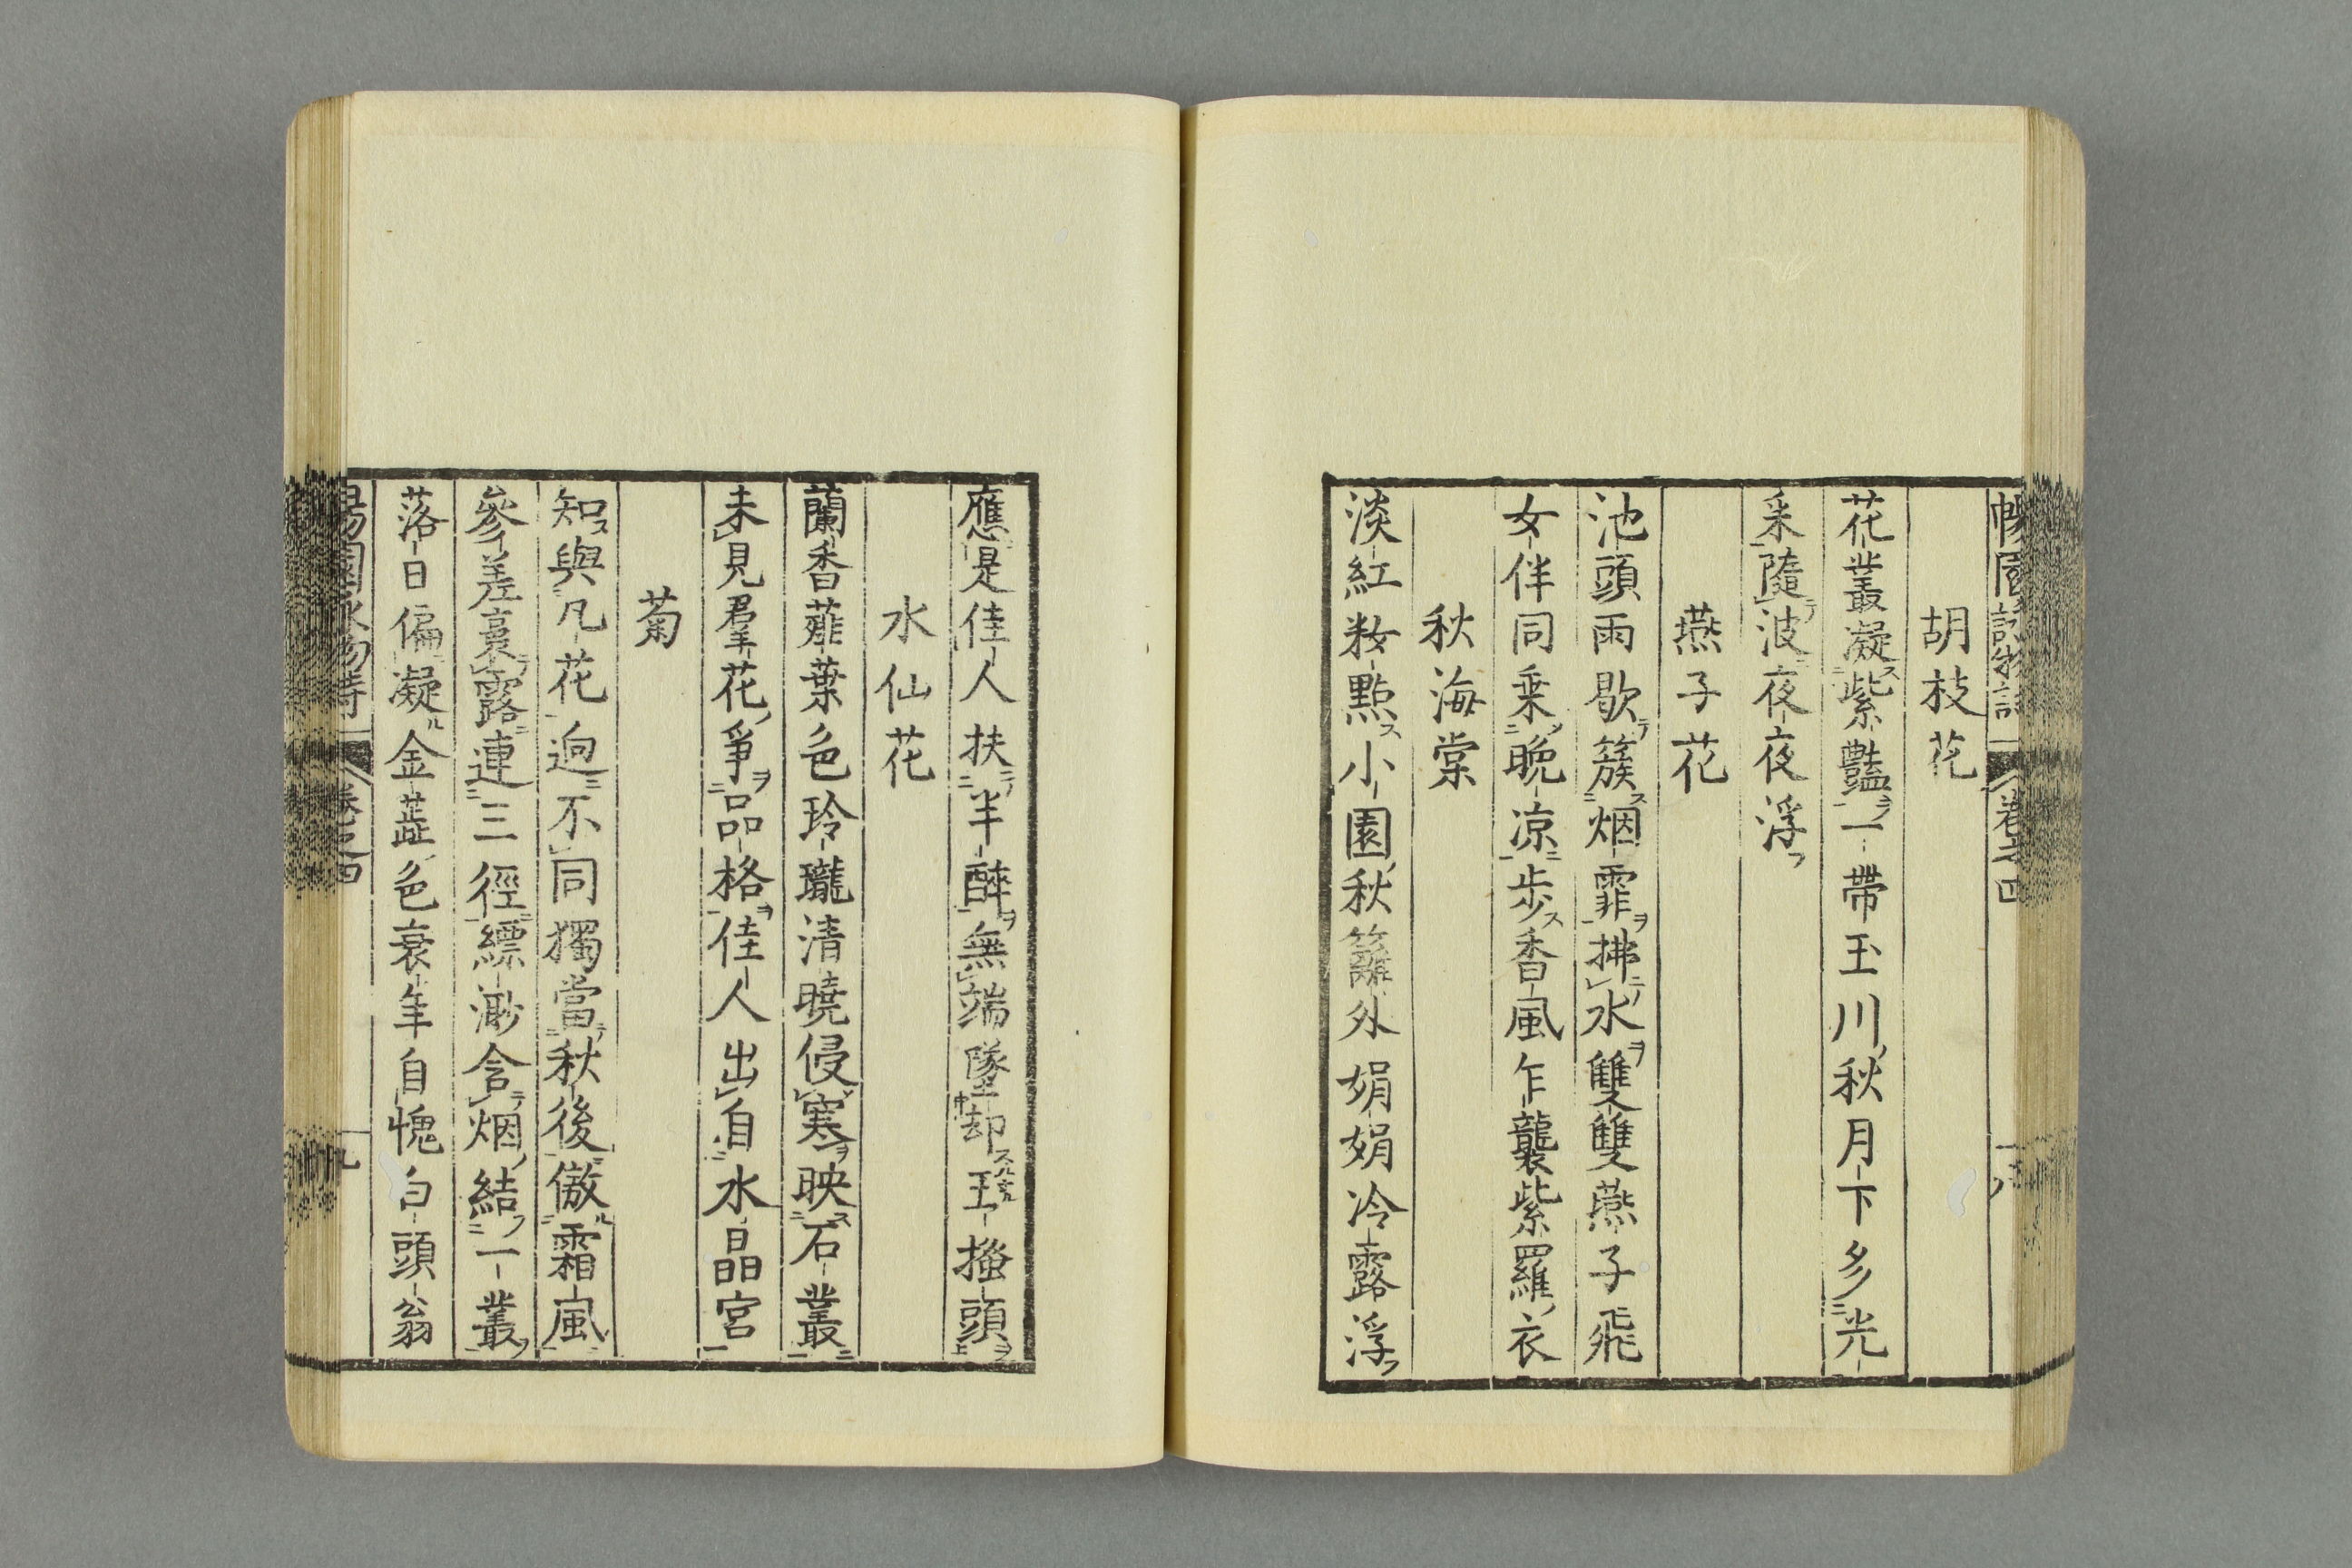 暢園詠物詩 卷之四 十八
胡枝花
花叢凝紫豔一帶玉川秋月下多光
采隨波夜夜浮
燕子花
池頭雨歇簇烟霏拂水雙雙燕子飛
女伴同乗晚凉步香風乍襲紫羅衣
秋海棠
淡紅粧點小園秋籬外娟娟冷露浮
應是佳人扶半醉無端墜却玉搔頭
水仙花
蘭香薤葉色玲瓏清曉侵寒映石叢
未見羣花爭品格佳人出自水晶宮
菊
知與凡花迥不同獨當秋後傲霜風
參差裛露連三徑縹渺含烟結一叢
落日偏凝金蕋色衰年自愧白頭翁
暢園詠物詩 卷之四 十九